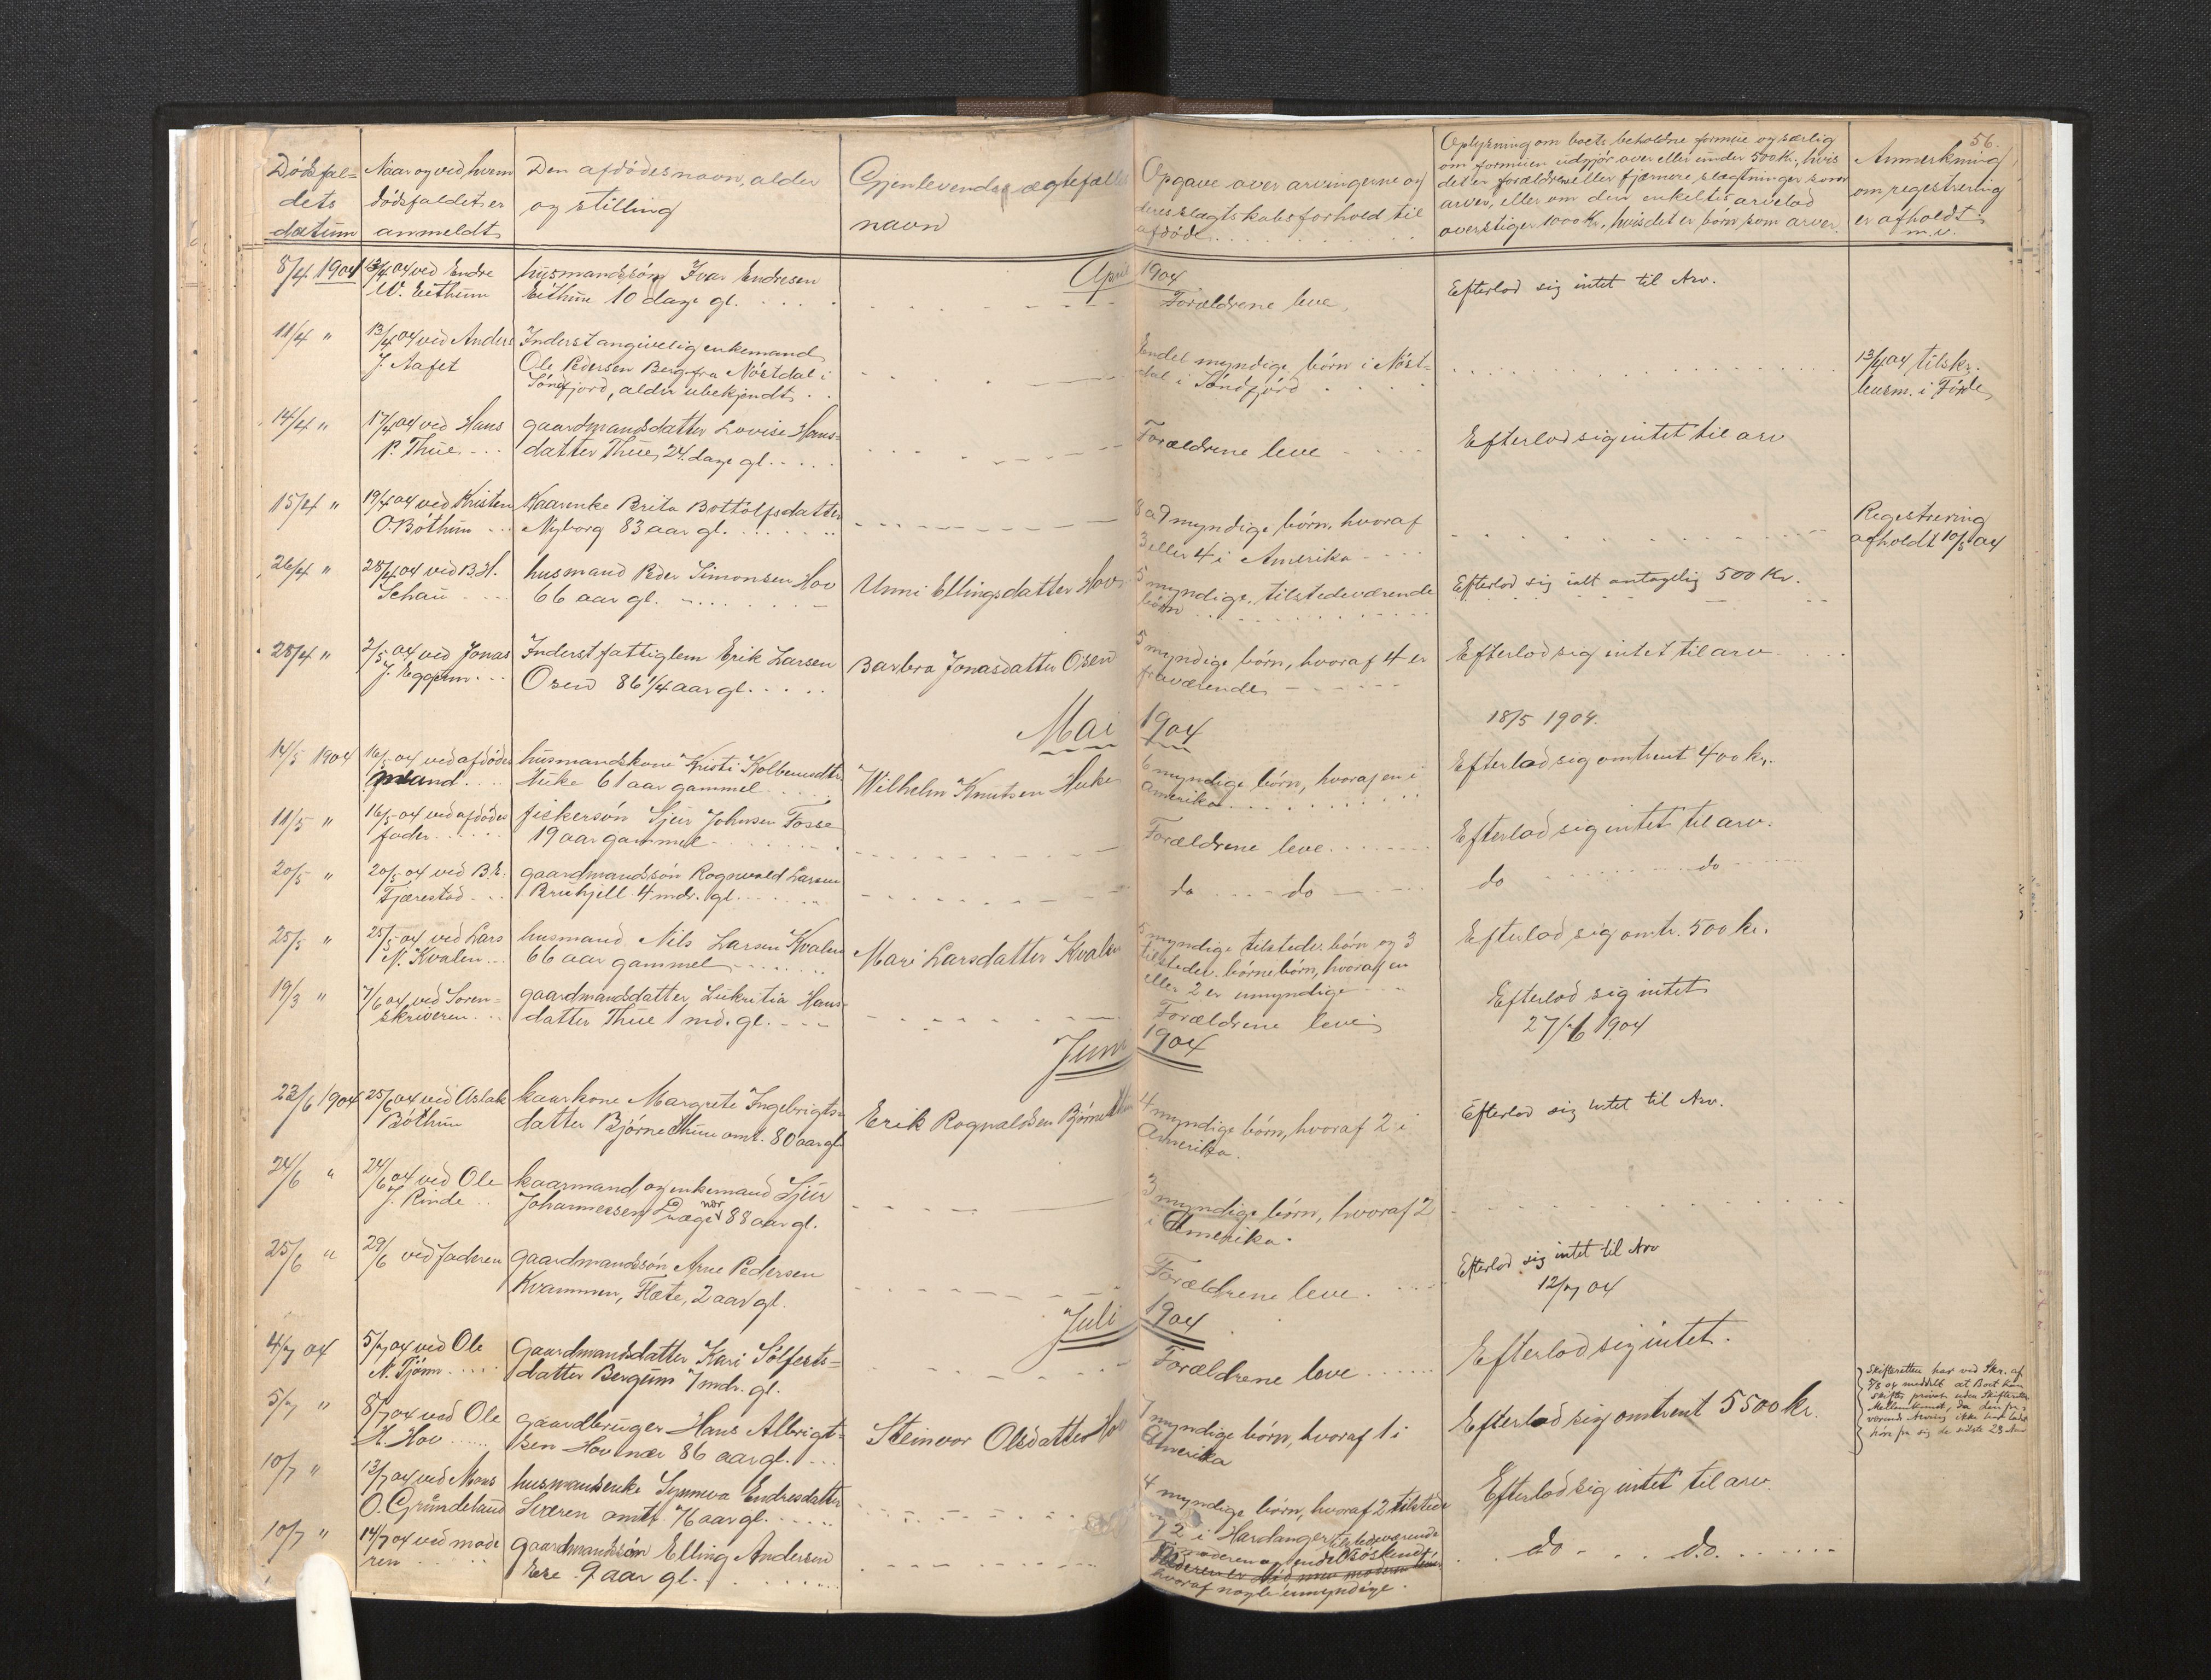 56.
Dødsfal-
dets
datum
Naar og ved hvem
dødsfaldet er
anmeldt
Den afdødes navn, alder
og stilling
Gjenlevende ægtefælles
navn
Opgave over arvingerne og
deres slægtskabsforhold til
afdøde
Oplysning om boets beholdne formue og særlig
om formuen udgjør over eller under 500 Kr, hvis
det er forældre eller fjærnere slægtninger som
arver, eller om den enkeltes arvelod
overstiger 1000 Kr, hvis det er børn som arver.
Anmerkning
om registrering
er afholdt
m.v.
April 1904
8/4 1904
13/4 04 ved Endre
W. Eithun
husmandssøn Ivar Endresen
Eithun 10 dage gl.
Forældrene leve,
Efterlod sig intet til Arv.
11/4 "
13/4 04 ved Anders
J. Aafet
Inderst angivelig enkemand
Ole Pedersen Berge fra Nøstdal i
Søndfjord, alder ubekjendt.
Endel myndige børn i Nøst-
dal i Søndfjord
13/4 04 tilskr.
lensm. i Førde
14/4 "
17/4 04 ved Hans
P. Thue
gaardmandsdatter Lovise Hans-
datter Thue, 24. dage gl.
Forældrene leve
Efterlod sig intet til arv
15/4 "
19/4 04 ved Kristen
O. Bøthun
Kaarenke Brita Bottolfsdatter
Nyborg 83 aar gl.
8 a 9 myndige børn, hvoraf
3 eller 4 i Amerika
Registrering
afholdt 10/5 04
26/4 "
28/4 04 ved B. H.
Schau
husmand Peder Simonsen Hov
66 aar gl.
Unni Ellingsdatter Hov
5 myndige, tilstedeværende
børn
Efterlod sig ialt antagelig 500 Kr.
28/4 "
2/5 04 ved Jonas
J. Eggum
Inderst fattiglem Erik Larsen
Osen 86 1/4 aar gl.
Barbra Jonasdatter Osen
5 myndige børn, hvoraf 4 er
fraværende
Efterlod sig intet til arv
Mai 1904
18/5 1904.
14/5 1904
16/5 04 ved afdødes
mand
husmandskone Kristi Kolbensdtr
Huke 61 aar gammel
Wilhelm Knutsen Huke
6 myndige børn, hvoraf en i
Amerika
Efterlod sig omtrent 400 kr.
11/5 "
16/5 04 ved afdødes
fader
fiskersøn Sjur Johnsen Fosse
19 aar gammel
Forældrene leve
Efterlod sig intet til arv.
20/5 "
20/5 04 ved B. E.
Tjærestad
gaardmandssøn Rognvald Larsen
Bruhjell 4 mdr. gl.
do do
do do
25/5 "
25/5 04 ved Lars
N. Kvalen
husmand Nils Larsen Kvalen
66 aar gammel
Mari Larsdatter Kvalen
5 myndige tilstedev. børn og 3
tilstedev. børnebørn, hvoraf en
eller 2 er umyndige
Efterlod sig omtr. 500 kr.
19/3 "
7/6 04 ved Soren-
skriveren
gaardmandsdatter Lukritia Hans-
datter Thue 1 md. gl.
Forældrene leve
Efterlod sig intet
27/6 1904
Juni 1904
23/6 1904
25/6 04 ved Aslak
Bøthun
kaarkone Margrete Ingebrigts-
datter Bjørnethun omt. 80 aar gl
Erik Rognaldsen Bjørnethun
4 myndige børn, hvoraf 2 i
Amerika.
Efterlod sig intet til Arv.
24/6 "
24/6 04 ved Ole
J. Rinde
kaarmand og enkemand Sjur
Johannessen Dvæge nær 88 aar gl.
3 myndige børn, hvoraf 2
i Amerika.
25/6 "
29/6 ved faderen
gaardmandssøn Arne Pedersen
Kvammen, Flete, 2 aar gl.
Forældrene leve.
Efterlod sig intet til Arv
12/7 04
Juli 1904
4/7 04
5/7 04 ved Ole
N. Tjønn
Gaardmandsdatter Kari Sølfests-
datter Bergum 7 mdr. gl.
Forældrene leve
Efterlod sig intet.
5/7 "
8/7 04 ved Ole
H. Hov
gaardbruger Hans Albrigt-
sen Hov nær 86 aar gl.
Steinvor Olsdatter Hov
7 myndige børn, hvoraf 1 i
Amerika
Efterlod sig omtrent 5500 kr.
Skifteretten har ved Skr. af
5/8 04 meddelt at Boet kan
skiftes privat uden Skifterettens
Mellemkomst, da den fra-
værende Arving ikke har ladet
høre fra sig de sidste 23 Aar
10/7 "
13/7 04 ved Mons
O. Grundeland
husmandsenke Synneva Endresdatter
Sværen omtr. 76 aar gl.
4 myndige børn, hvoraf 2 tilstede
og 2 i Hardanger
Efterlod sig intet til arv.
10/7 "
14/7 04 ved mode
ren
gaardmandssøn Elling Andersen
Ese 9 aar gl.
tilstedeværende
moderen og endel søskende
hvoraf nogle umyndige.
do do